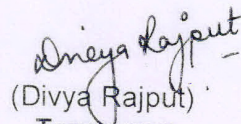 Divya Rajput
(Divya Rajput)